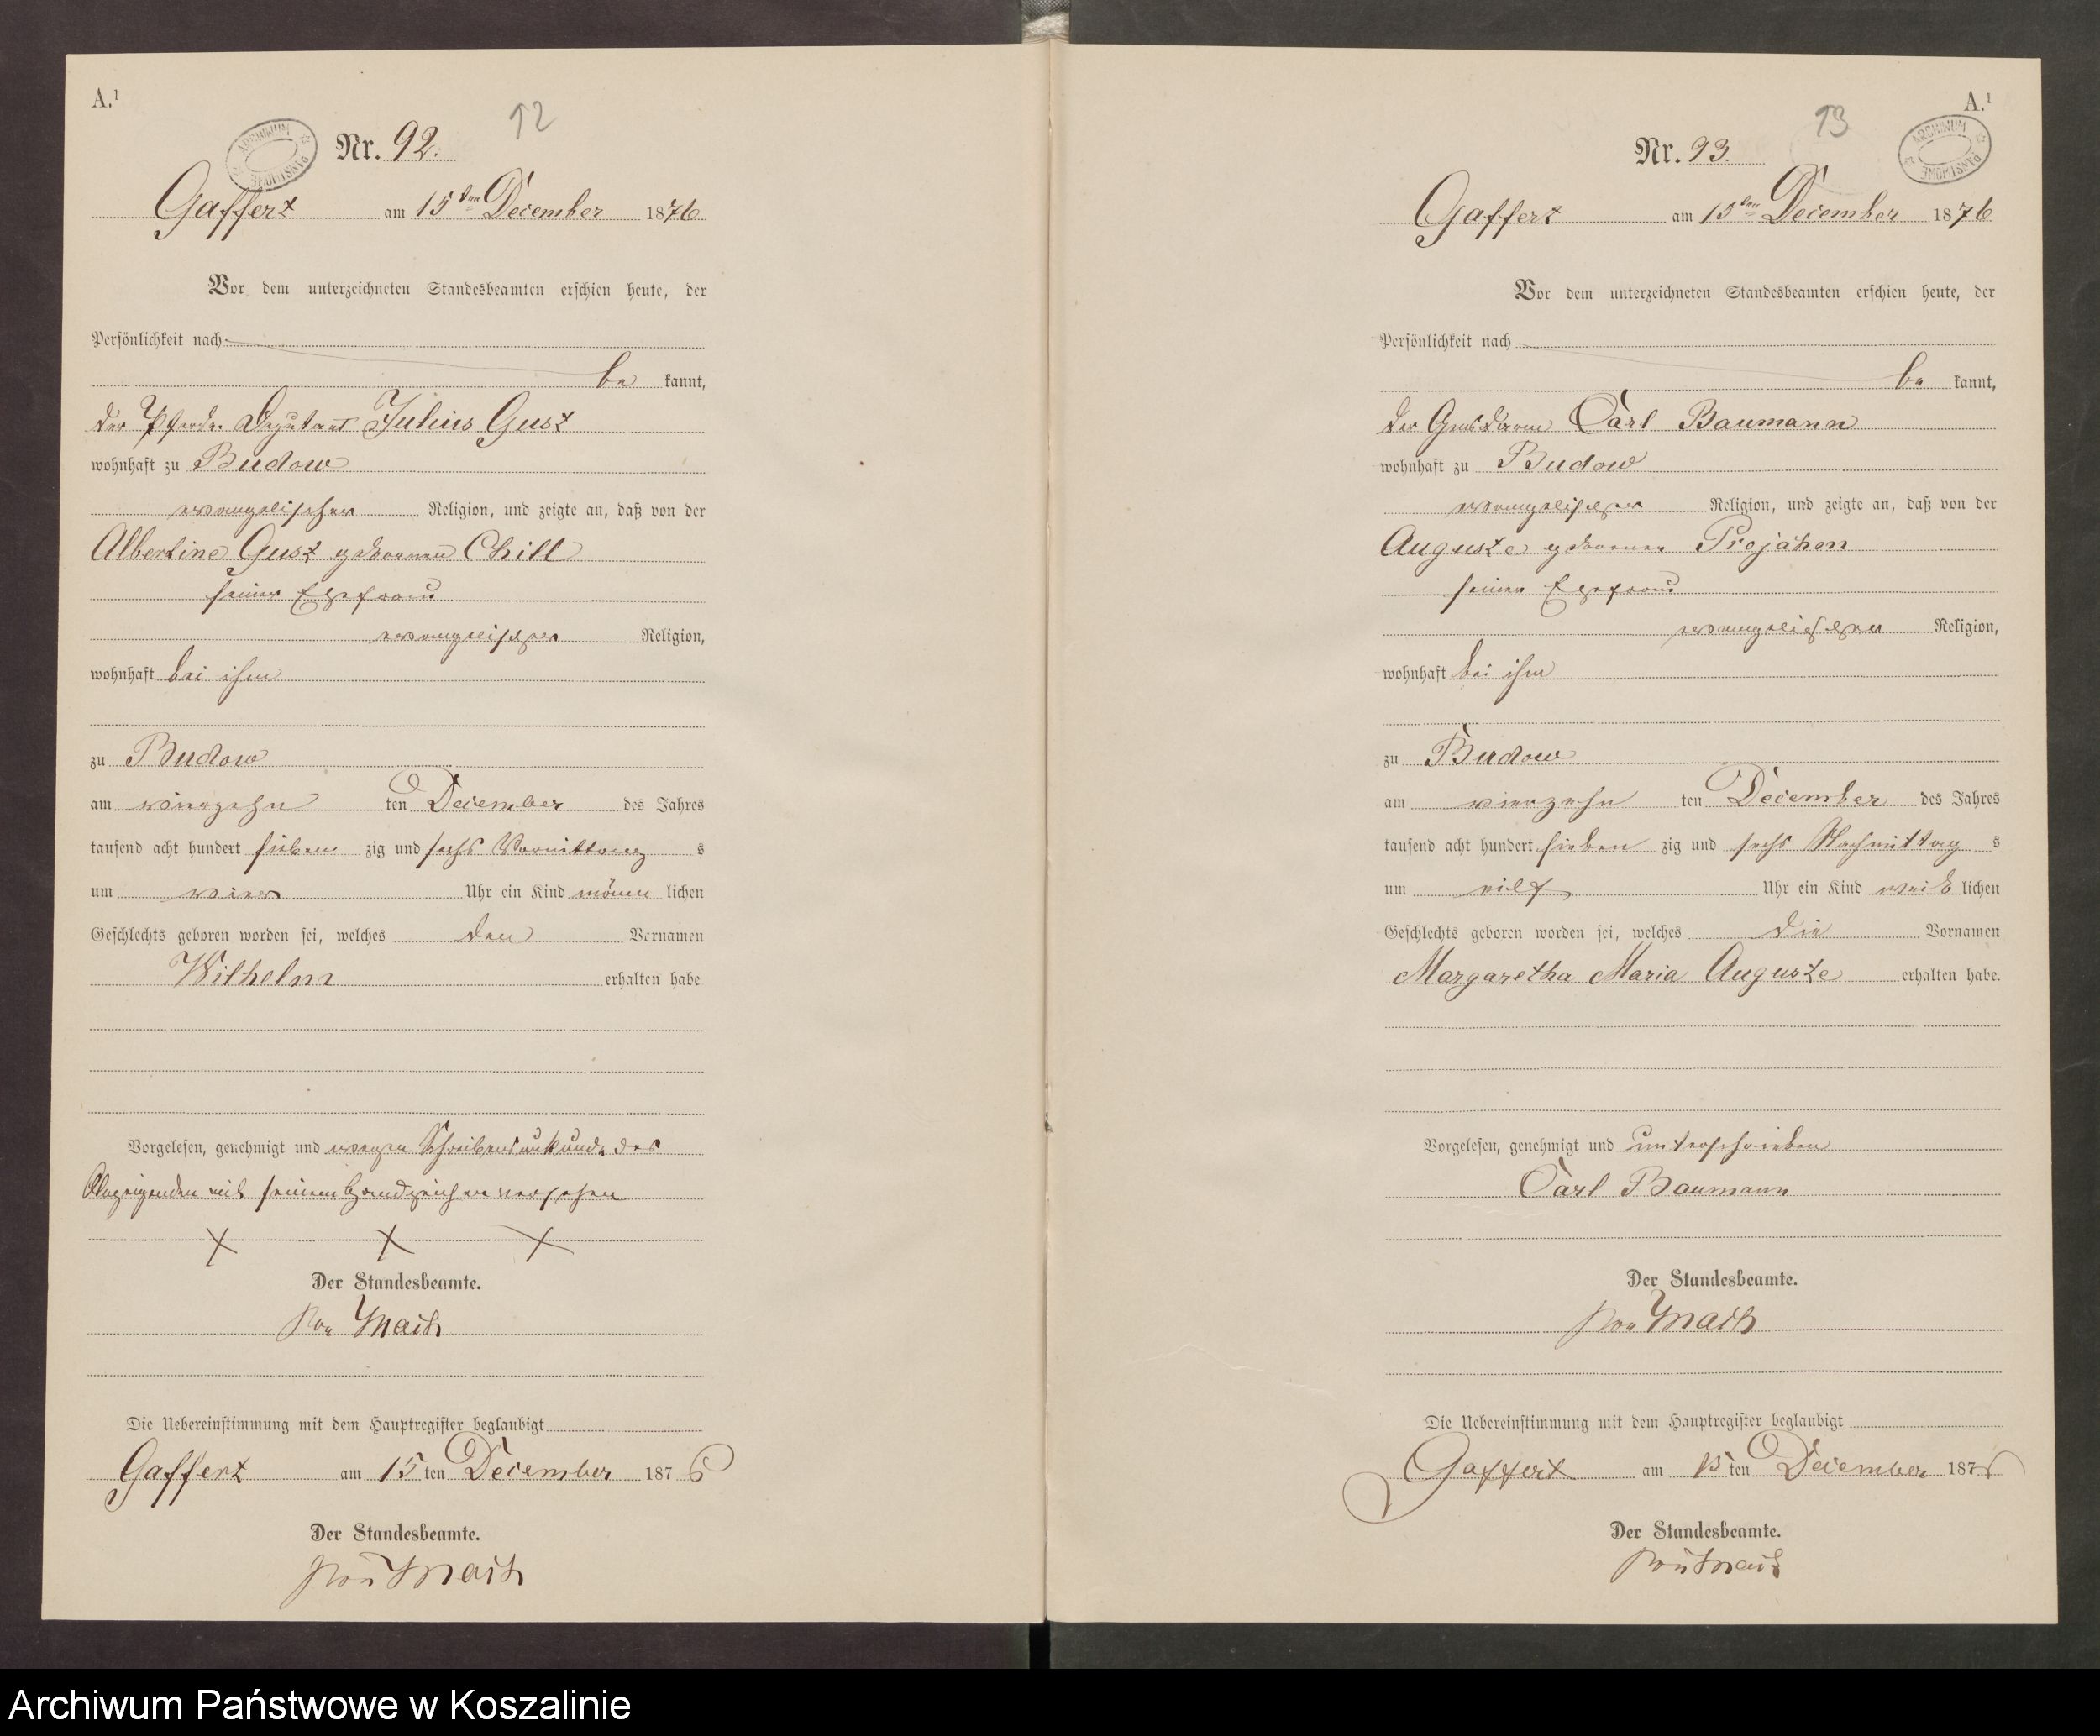 A.¹
12
ARCHIWUM PAŃSTWOWE
Nr. 92.
Gaffert am 15ten December 1876
Vor dem unterzeichneten Standesbeamten erschien heute, der
Persönlichkeit nach
be kannt,
der Pferde-Deputant Julius Gust
wohnhaft zu Budow
evangelischer Religion, und zeigte an, daß von der
Albertine Gust geborenen Chill
seiner Ehefrau
evangelischer Religion,
wohnhaft bei ihm
zu Budow
am vierzehn ten December des Jahres
tausend acht hundert sieben zig und sechs Vormittag s
um vier Uhr ein Kind männ lichen
Geschlechts geboren worden sei, welches den Vornamen
Wilhelm erhalten habe
Vorgelesen, genehmigt und wegen Schreibensunkunde des
Anzeigenden mit seinem Handzeichen versehen
X X X
Der Standesbeamte.
von Mach
Die Uebereinstimmung mit dem Hauptregister beglaubigt
Gaffert am 15 ten December 1876
Der Standesbeamte.
von Mach
A.¹
13
ARCHIWUM PAŃSTWOWE
Nr. 93.
Gaffert am 15ten December 1876
Vor dem unterzeichneten Standesbeamten erschien heute, der
Persönlichkeit nach
be kannt,
der Gensdarm Carl Baumann
wohnhaft zu Budow
evangelischer Religion, und zeigte an, daß von der
Auguste geborenen Projahn
seiner Ehefrau
evangelischer Religion,
wohnhaft bei ihm
zu Budow
am vierzehn ten December des Jahres
tausend acht hundert sieben zig und sechs Nachmittag s
um elf Uhr ein Kind weib lichen
Geschlechts geboren worden sei, welches die Vornamen
Margaretha Maria Auguste erhalten habe.
Vorgelesen, genehmigt und unterschrieben
Carl Baumann
Der Standesbeamte.
von Mach
Die Uebereinstimmung mit dem Hauptregister beglaubigt
Gaffert am 15 ten December 1876
Der Standesbeamte.
von Mach
Archiwum Państwowe w Koszalinie